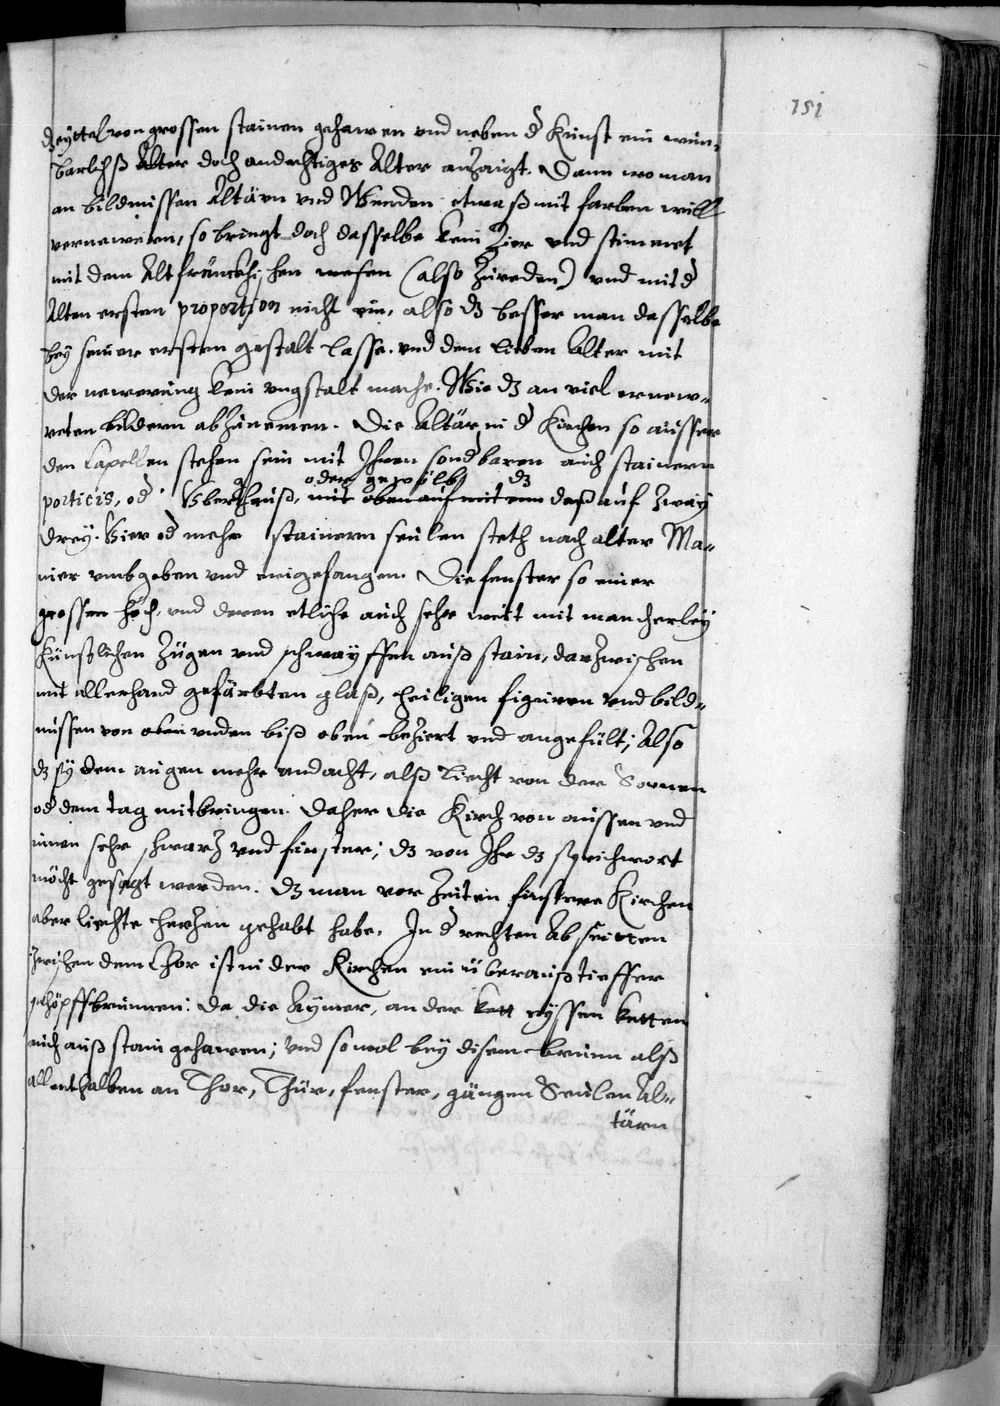 151
Zeyttel von grossen stainen gehawen und neben d Kunst ein wun„
barlichß Alter doch andechtiges Alter anzaigt. Dann wo man
an bildnissen Altärn und Wenden etwaß mit farben will
vernewern, so bringt doch dasselbe kein Zier und stimmet
mit dem Altfränckhischen wesen (also Zureden) und mit d
Alten ersten proportion nicht ein, also dz besser man dasselbe
bey seiner ersten gestalt lasse. und dem lieben Alter mit
der newerung kein ungstalt mache. Wie dz an viel ernew„
reten bildern abzunemen. Die Altär in d Kirchen so ausser
den Capellen stehen sein mit Ihren sondbaren auch stainern
oder gewölb dz
porticis, od Überheuß, mit oben auf mit em daß auf zway
drey. Vier od mehr stainern seulen steth nach alter Ma„
nier umbgeben und eingefangen. Die fenster so einer
grossen höch, und deren etliche auch sehr weit mit mancherley
künstlichen Zügen und schwayffen auß stain, darzwischen
mit allerhand gefärbten glaß, heiligen figuren und bild„
nussen von oben unden biß oben beziert und angefült; Also
dz sy dem augen mehr andacht, alß liecht von der Sonnen
od dem tag mitbringen. Daher die Kirch von aussen und
innen sehr schwarz und finster; dz von Ihr dz sprichwort
möcht gesagt werden. dz man vor Zeiten finstere Kirchen
aber liechte herzen gehabt habe. In d rechten Abseitten
zwischen dem Chor ist in der Kirchen ein überauß tieffer
schöpffbrunnen: da die Aymer, an der kett eyssen ketten
auch auß stain gehawen; Und sowol bey disem brunn alß
allenthalben an Thor, Thür, fenster, gängen Seulen Al„
tärn